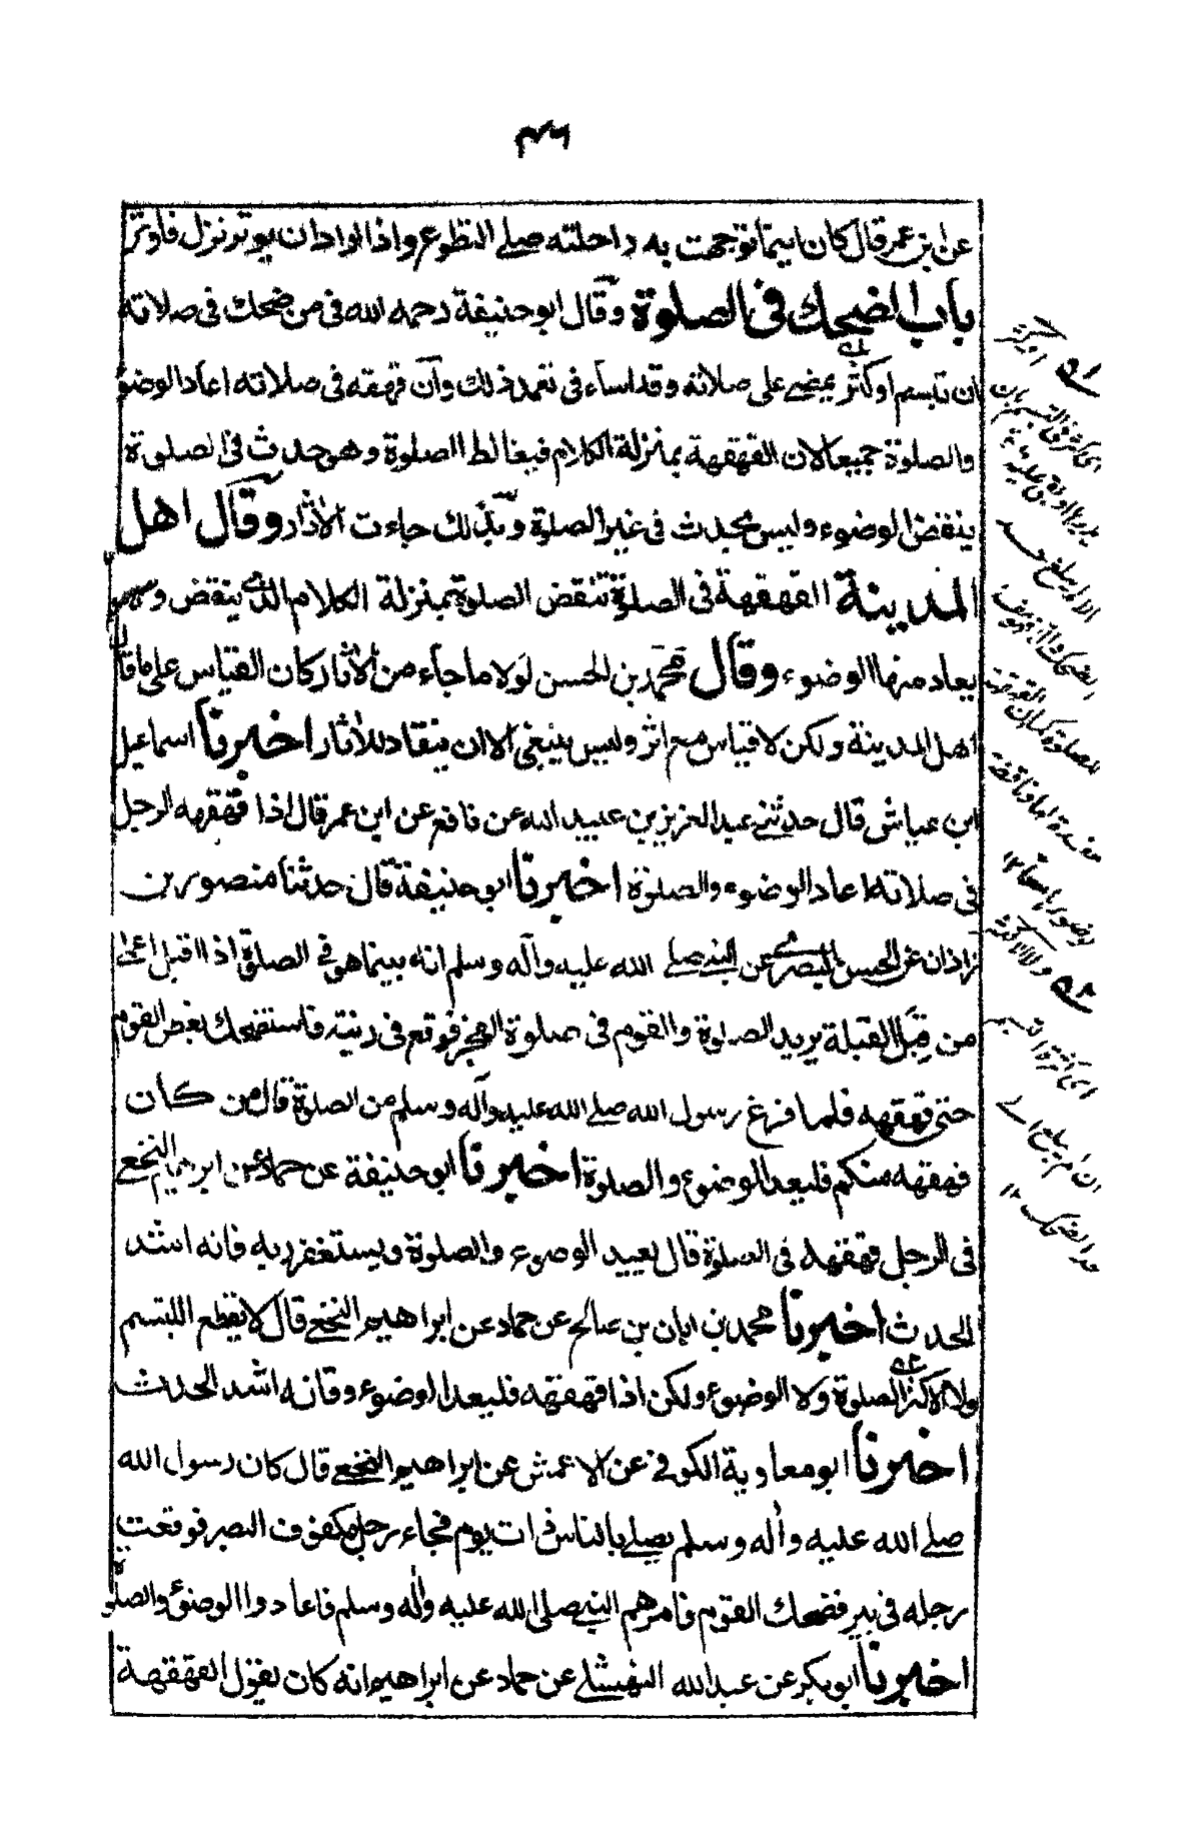 عن ابن عمر قال كان اينما توجهت به راحلته صلى التطوع واذا اراد ان يوتر نزل فاوتر
باب الضحك فى الصلوة وقال ابو حنيفة رحمه الله فى من ضحك فى صلاته
ان تبسم او كشر يمضى على صلاته وقد اساء فى تعمد ذلك وان قهقه فى صلاته اعاد الوضوء
والصلوة جميعا لان القهقهة بمنزلة الكلام فيغالط الصلوة وهو حدث فى الصلوة
ينقض الوضوء وليس بحدث فى غير الصلوة وبذلك جاءت الاثار وقال اهل
المدينة القهقهة فى الصلوة تنقض الصلوة بمنزلة الكلام الذى ينقض و
يعاد منها الوضوء وقال محمد بن الحسن لولا ما جاء من الاثار كان القياس على ما قال
اهل المدينة ولكن لا قياس مع اثر وليس ينبغى الا ان ينقاد للاثار اخبرنا اسماعيل
ابن عياش قال حدثنى عبد العزيز بن عبيد الله عن نافع عن ابن عمر قال اذا قهقهه الرجل
فى صلاته اعاد الوضوء والصلوة اخبرنا ابو حنيفة قال حدثنا منصور بن
زاذان عن الحسن البصرى عن النبى صلى الله عليه وآله وسلم انه بينما هو فى الصلوة اذ اقبل اعمى
من قبل القبلة يريد الصلوة والقوم فى صلوة الفجر فوقع فى زبية فاستضحك بعض القوم
حتى قهقهه فلما فرغ رسول الله صلى الله عليه وآله وسلم من الصلوة قال من كان
قهقهه منكم فليعد الوضوء والصلوة اخبرنا ابو حنيفة عن حماد عن ابراهيم النخعى
فى الرجل قهقهه فى الصلوة قال يعيد الوضوء والصلوة ويستغفر ربه فانه اشد
الحدث اخبرنا محمد بن ابان بن صالح عن حماد عن ابراهيم النخعى قال لا يقطع التبسم
ولا الكشر الصلوة ولا الوضوء ولكن اذا قهقهه فليعد الوضوء وفانه اشد الحدث
اخبرنا ابو معاوية الكوفى عن الاعمش عن ابراهيم النخعى قال كان رسول الله
صلى الله عليه وآله وسلم يصلى بالناس ذات يوم فجاء رجل مكفوف البصر فوقعت
رجله فى بير فضحك القوم فامرهم النبى صلى الله عليه وآله وسلم فاعادوا الوضوء والصلوة
اخبرنا ابو بكر عن عبد الله النهشلى عن حماد عن ابراهيم انه كان يقول القهقهة